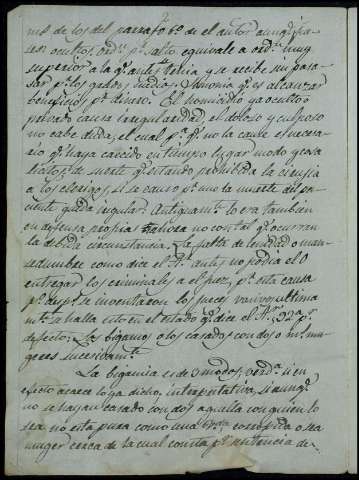 mˢ de los del parrafo 6º de el autor aunq̃
ras ocultos, ordⁿ pʳ salto equivale a ordⁿ muy
superior a la q̃ antˢ tenia y se recibe sin pa-
sar pʳ los grados medios. Simonia q̃ es alcanzar
beneficios pʳ dinero. El homicidio ya oculto o
privado causa irregularidad el doloso y culposo
no cabe duda, el cual pʳ q̃ no la cause el necesa-
rio q̃ haya carecido en tiempo lugar modo y cosa
de suerte q̃ estando prohibida la cirugia
a los clerigos, si se causo pʳ uno la muerte del pa-
ciente queda irregular. Antiguamᵗᵉ lo era tambien
en defensa propia ahora no con tal q̃ ocurran
la debida circunstancia. La falta de lenidad o man-
sedumbre como dice el Aʳ. antˢ no podia el O
entregar los criminales a el juez, pʳ esta causa
pʳ se inventaron los jueces ultima
mᵗᵉ se halla esto en el estado q̃ dice el Aʳ. 22º pʳ
defecto. Los bigamos o los casados con dos o mˢ mu-
geres sucesivamᵗᵉ
La bigamia es de 3 modos, verdᵃ si en
efecto acaece lo ya dicho, interpretativa, si aunq̃
no se hayan casado con dos aquella con quien lo
sea no esta pura como una viuda, corrompida o sea
muger cerca de la cual consta pʳ sentencia de-